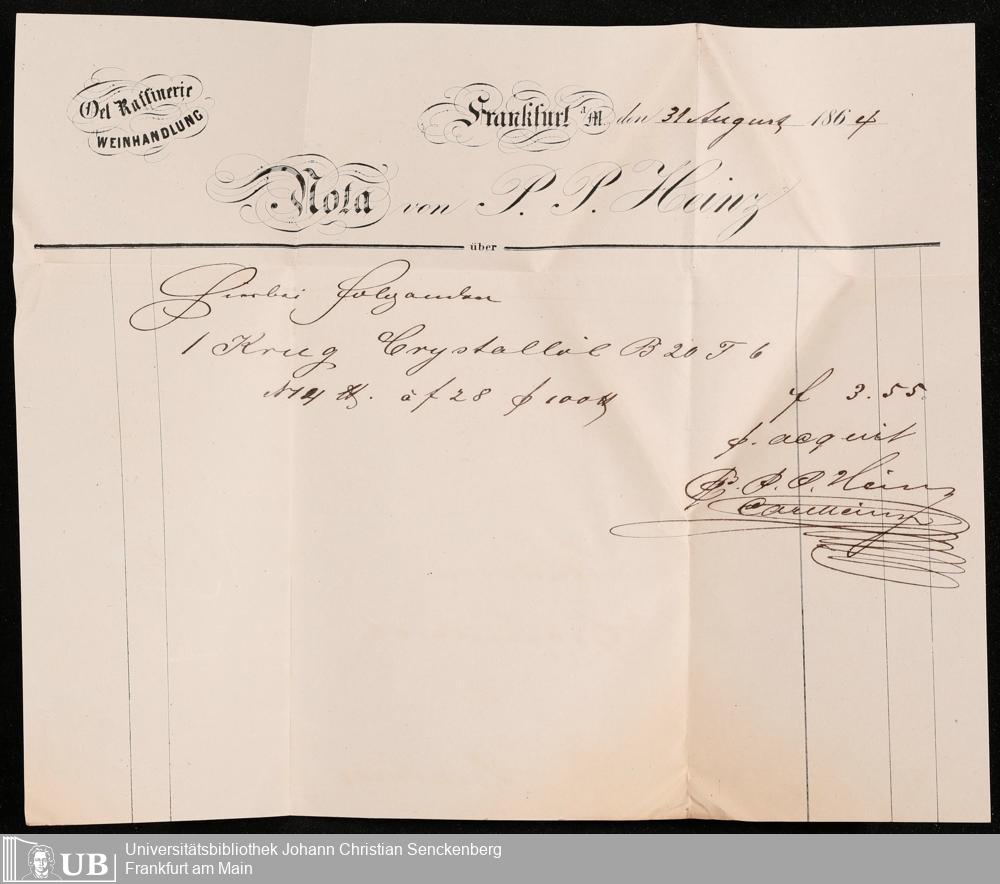 Oel Raffinerie
WEINHANDLUNG
Frankfurt a/M. den 31 August 1864
Nota von P. P. Heinz
über
Hierbei folgenden
1 Krug Crystallöl B 20 T 6
N 14 ℔. à f 28 p 100 ℔ f 3.55.
p. acquit
P. P. P. Heinz
Carl Heinz
UB Universitätsbibliothek Johann Christian Senckenberg
Frankfurt am Main